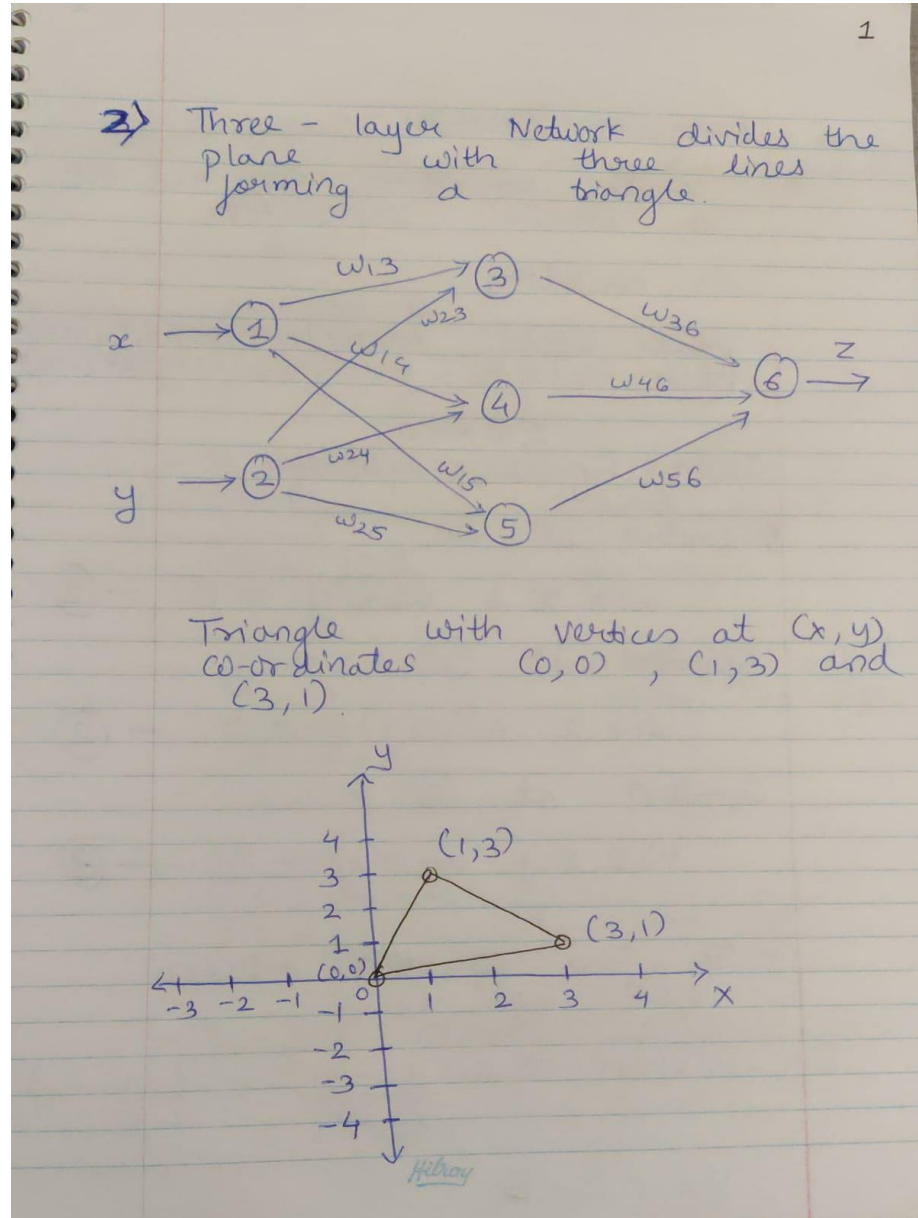 1
2) Three - layer Network divides the
plane with three lines
forming a triangle.
w13
3
w23
w36
x
1
w14
z
6
w46
4
w24
2
w15
y
w25
w56
5
Triangle with vertices at (x, y)
co-ordinates (0,0) , (1,3) and
(3,1)
y
4
(1,3)
3
2
(3,1)
1
(0,0)
-3 -2 -1 0 1 2 3 4 X
-1
-2
-3
-4
Hilroy